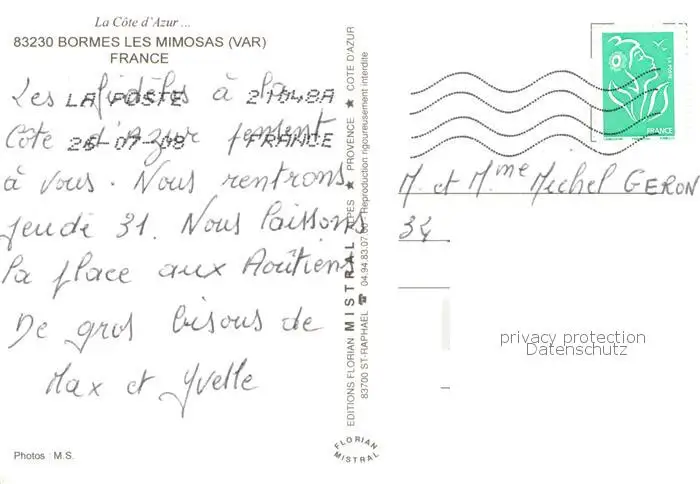 La Côte d'Azur ...
83230 BORMES LES MIMOSAS (VAR)
FRANCE
Les fidèles à la
Côte d'Azur pensent
à vous. Nous rentrons
jeudi 31. Nous laissons
la place aux Aoûtiens
De gros bisous de
Max et Yvelle
LA POSTE 21148A
26-07-08 FRANCE
Photos : M.S.
EDITIONS FLORIAN MISTRAL ALPES ★ PROVENCE ★ COTE D'AZUR
83700 ST-RAPHAEL ☎ 04.94.83.07. - Reproduction rigoureusement interdite
FLORIAN
MISTRAL
LA POSTE
FRANCE
M. et Mme Michel GERON
34
privacy protection
Datenschutz